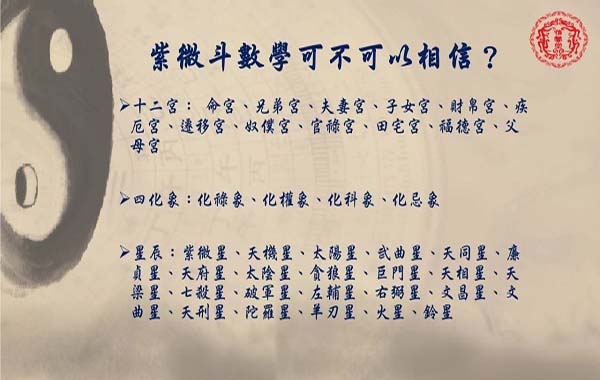 紫微斗數學可不可以相信？
➤十二宮： 命宮、兄弟宮、夫妻宮、子女宮、財帛宮、疾
厄宮、遷移宮、奴僕宮、官祿宮、田宅宮、福德宮、父
母宮
➤四化象：化祿象、化權象、化科象、化忌象
➤星辰：紫微星、天機星、太陽星、武曲星、天同星、廉
貞星、天府星、太陰星、貪狼星、巨門星、天相星、天
梁星、七殺星、破軍星、左輔星、右弼星、文昌星、文
曲星、天刑星、陀羅星、羊刃星、火星、鈴星